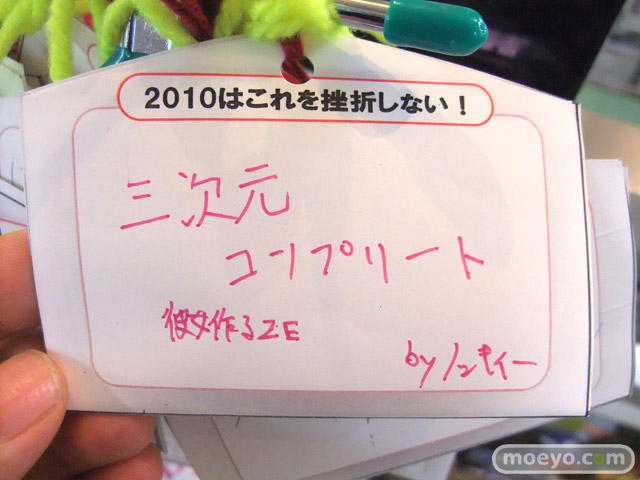 2010はこれを挫折しない!
三次元
コンプリート
彼女作るZE
by ノンキィー
moeyo.com